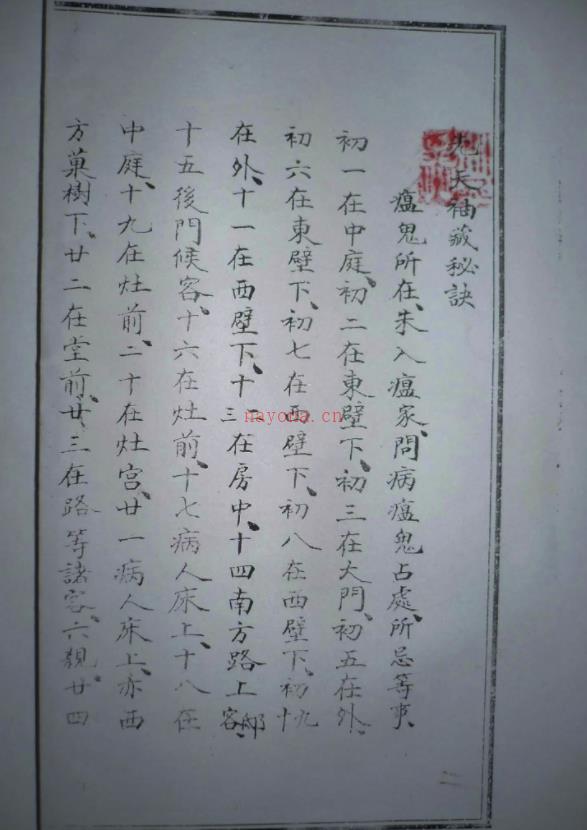 先天袖藏秘訣
瘟鬼所在、未入瘟家、問病瘟鬼占處、所忌等事、
初一在中庭、初二在東壁下、初三在大門、初五在外、
初六在東壁下、初七在西壁下、初八在西壁下、初九十
在外、十一在西壁下、十二三在房中、十四南方路上邸客、
十五後門候客、十六在灶前、十七病人床上、十八在
中庭、十九在灶前、二十在灶宫、廿一病人床上、亦西
方菓樹下、廿二在堂前、廿三在路等諸客、六親、廿四
nayona.cn
二